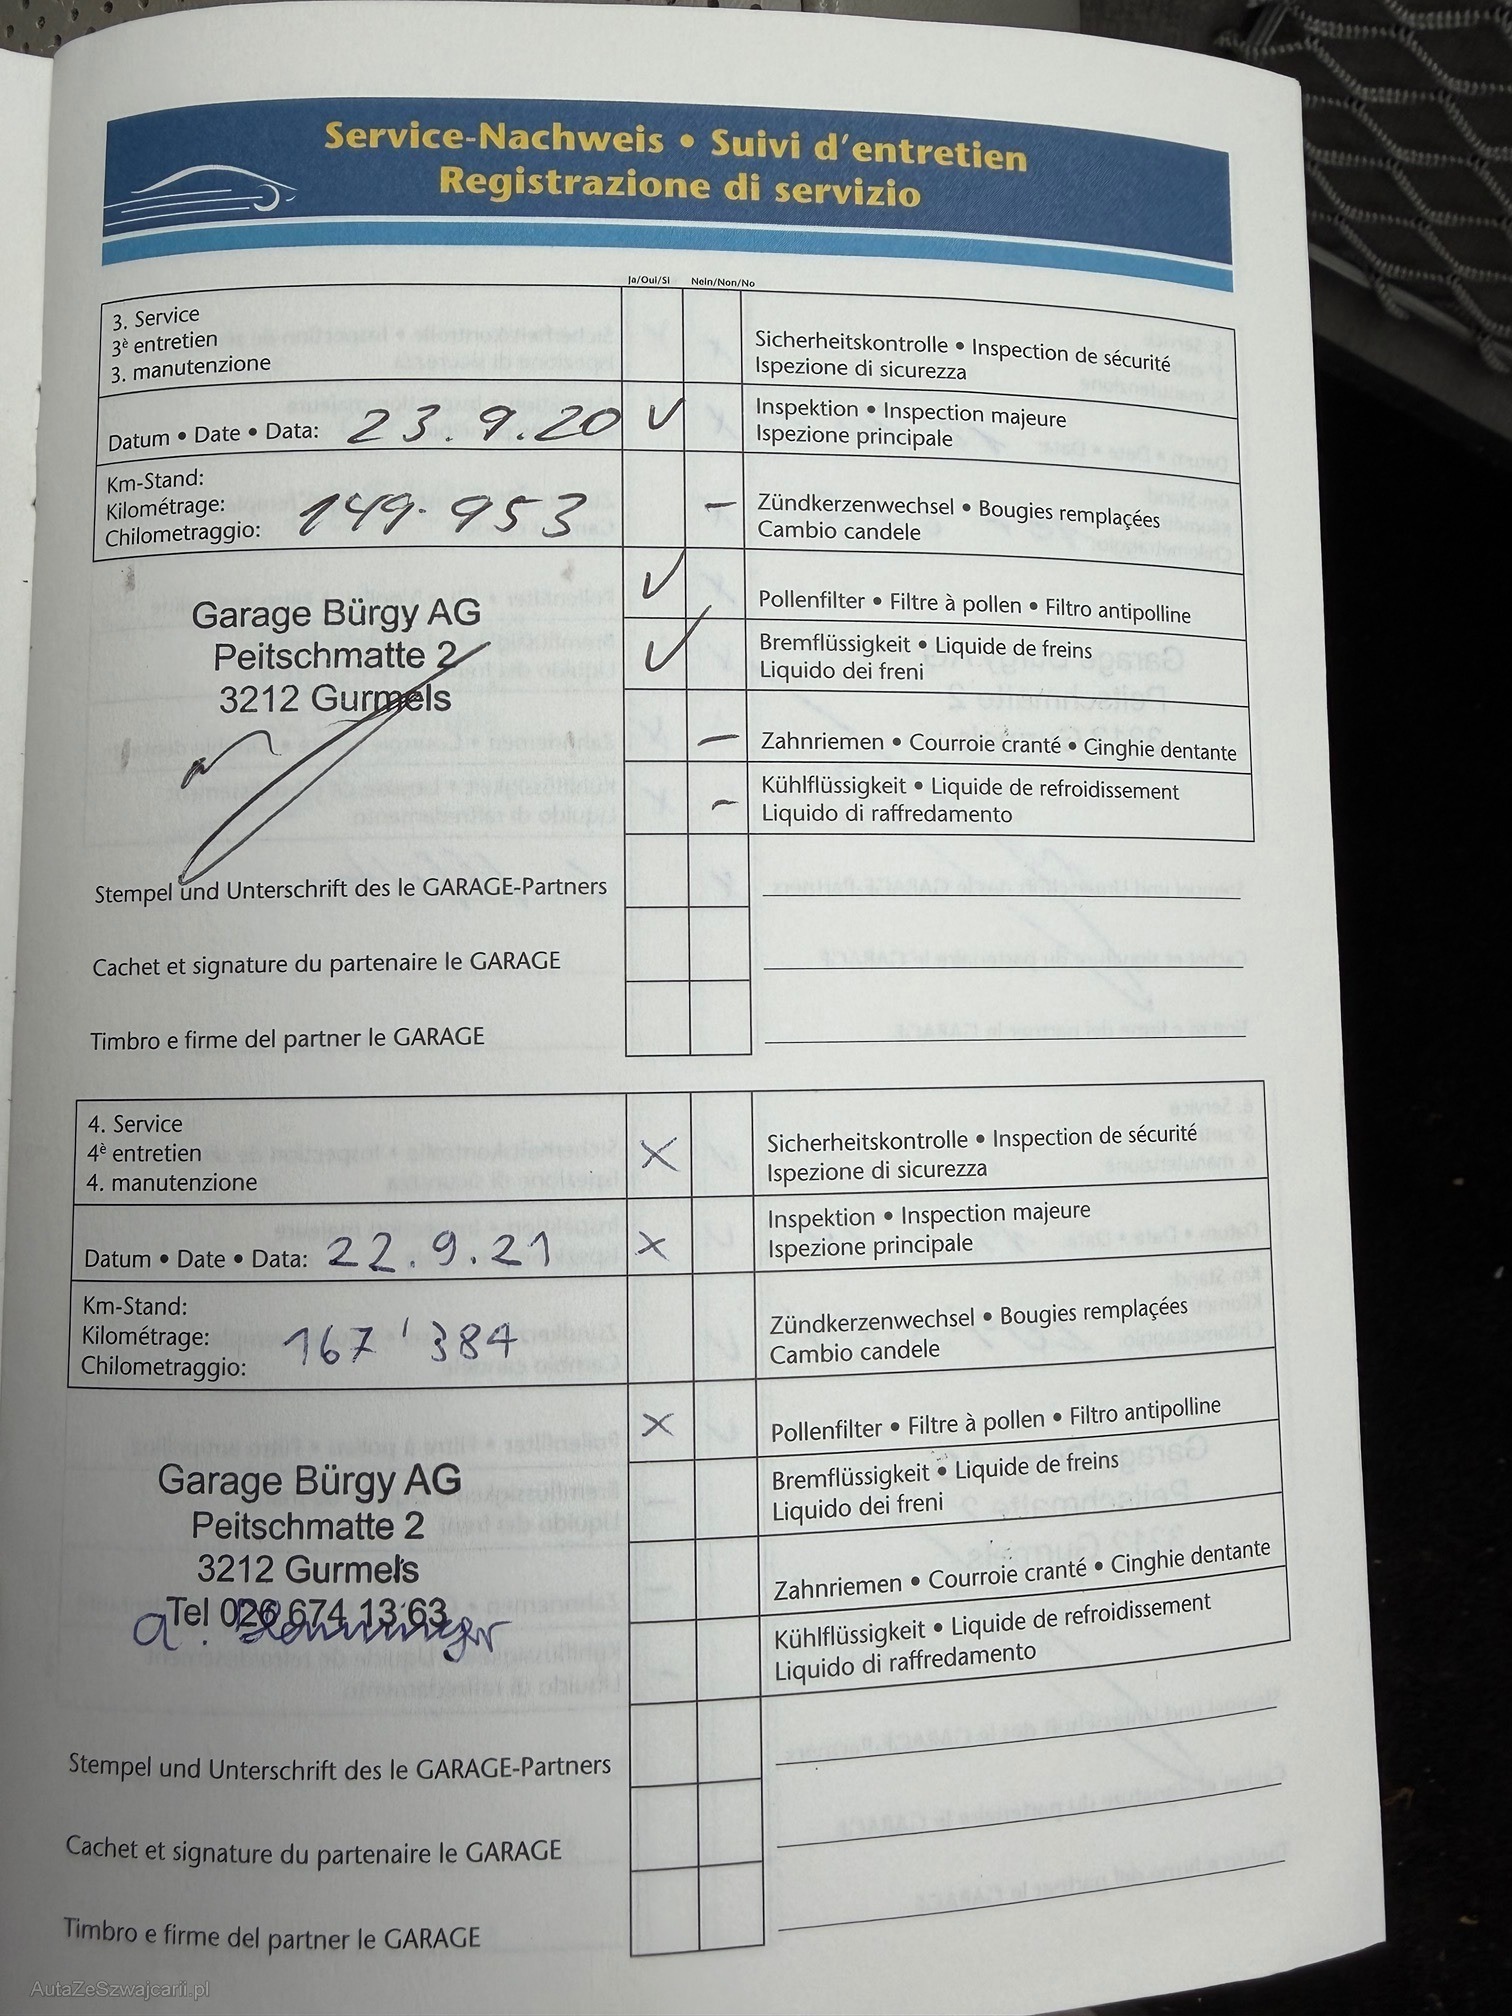 Service-Nachweis • Suivi d'entretien
Registrazione di servizio
Ja/Oui/Si Nein/Non/No
3. Service
3è entretien
3. manutenzione
Sicherheitskontrolle • Inspection de sécurité
Ispezione di sicurezza
Datum • Date • Data: 23.9.20
Inspektion • Inspection majeure
Ispezione principale
Km-Stand:
Kilométrage:
Chilometraggio: 149.953
Zündkerzenwechsel • Bougies remplaçées
Cambio candele
Pollenfilter • Filtre à pollen • Filtro antipolline
Garage Bürgy AG
Peitschmatte 2
3212 Gurmels
Bremflüssigkeit • Liquide de freins
Liquido dei freni
Zahnriemen • Courroie cranté • Cinghie dentante
Kühlflüssigkeit • Liquide de refroidissement
Liquido di raffredamento
Stempel und Unterschrift des le GARAGE-Partners
Cachet et signature du partenaire le GARAGE
Timbro e firme del partner le GARAGE
4. Service
4è entretien
4. manutenzione
Sicherheitskontrolle • Inspection de sécurité
Ispezione di sicurezza
Datum • Date • Data: 22.9.21
Inspektion • Inspection majeure
Ispezione principale
Km-Stand:
Kilométrage:
Chilometraggio: 167'384
Zündkerzenwechsel • Bougies remplaçées
Cambio candele
Pollenfilter • Filtre à pollen • Filtro antipolline
Garage Bürgy AG
Peitschmatte 2
3212 Gurmels
Tel 026 674 13 63
Bremflüssigkeit • Liquide de freins
Liquido dei freni
Zahnriemen • Courroie cranté • Cinghie dentante
Kühlflüssigkeit • Liquide de refroidissement
Liquido di raffredamento
Stempel und Unterschrift des le GARAGE-Partners
Cachet et signature du partenaire le GARAGE
Timbro e firme del partner le GARAGE
AutaZeSzwajcarii.pl